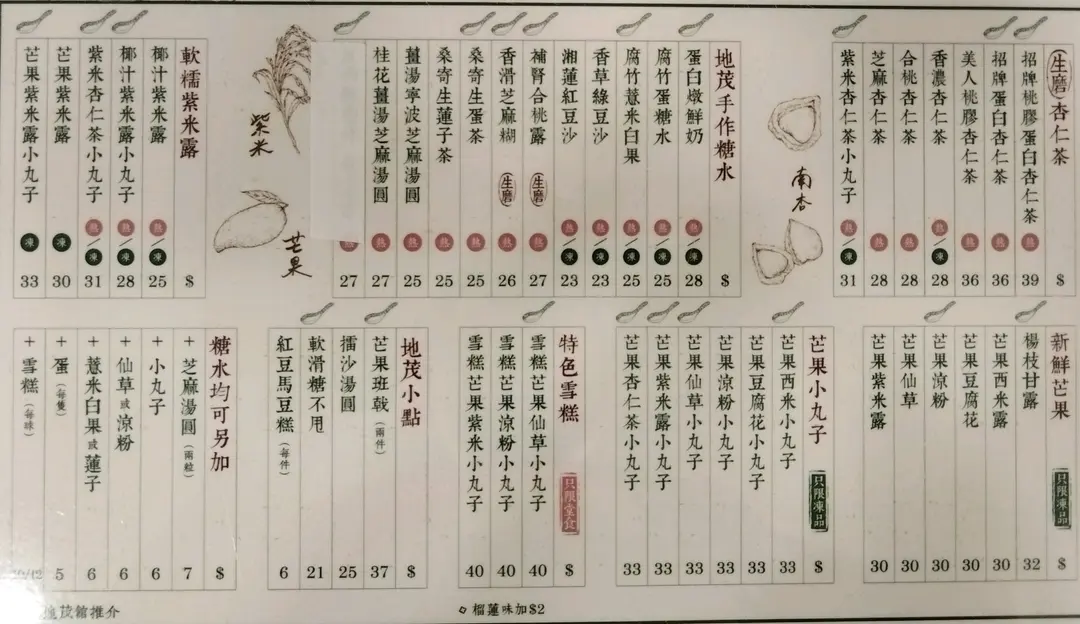 生磨杏仁茶 $
招牌桃膠蛋白杏仁茶 熱 39
招牌蛋白杏仁茶 熱 36
美人桃膠杏仁茶 熱 36
香濃杏仁茶 熱/凍 28
合桃杏仁茶 熱 28
芝麻杏仁茶 熱 28
紫米杏仁茶小丸子 熱/凍 31
南杏
地茂手作糖水 $
蛋白燉鮮奶 熱/凍 28
腐竹蛋糖水 熱/凍 25
腐竹薏米白果 熱/凍 25
香草綠豆沙 熱/凍 23
湘蓮紅豆沙 熱/凍 23
補腎合桃露 生磨 熱 27
香滑芝麻糊 生磨 熱 26
桑寄生蛋茶 熱 25
桑寄生蓮子茶 熱 25
薑湯寧波芝麻湯圓 熱 25
桂花薑湯芝麻湯圓 熱 27
熱 27
紫米
芒果
軟糯紫米露 $
椰汁紫米露 熱/凍 25
椰汁紫米露小丸子 熱/凍 28
紫米杏仁茶小丸子 熱/凍 31
芒果紫米露 凍 30
芒果紫米露小丸子 凍 33
新鮮芒果 只限凍品 $
楊枝甘露 32
芒果西米露 30
芒果豆腐花 30
芒果涼粉 30
芒果仙草 30
芒果紫米露 30
芒果小丸子 只限凍品 $
芒果西米小丸子 33
芒果豆腐花小丸子 33
芒果涼粉小丸子 33
芒果仙草小丸子 33
芒果紫米露小丸子 33
芒果杏仁茶小丸子 33
特色雪糕 只限堂食 $
雪糕芒果仙草小丸子 40
雪糕芒果涼粉小丸子 40
雪糕芒果紫米小丸子 40
地茂小點 $
芒果班戟(兩件) 37
擂沙湯圓 25
軟滑糖不甩 21
紅豆馬豆糕(每件) 6
糖水均可另加 $
+芝麻湯圓(兩粒) 7
+小丸子 6
+仙草或涼粉 6
+薏米白果或蓮子 6
+蛋(每隻) 5
+雪糕(每球) 10/12
榴蓮味加$2
地茂館推介